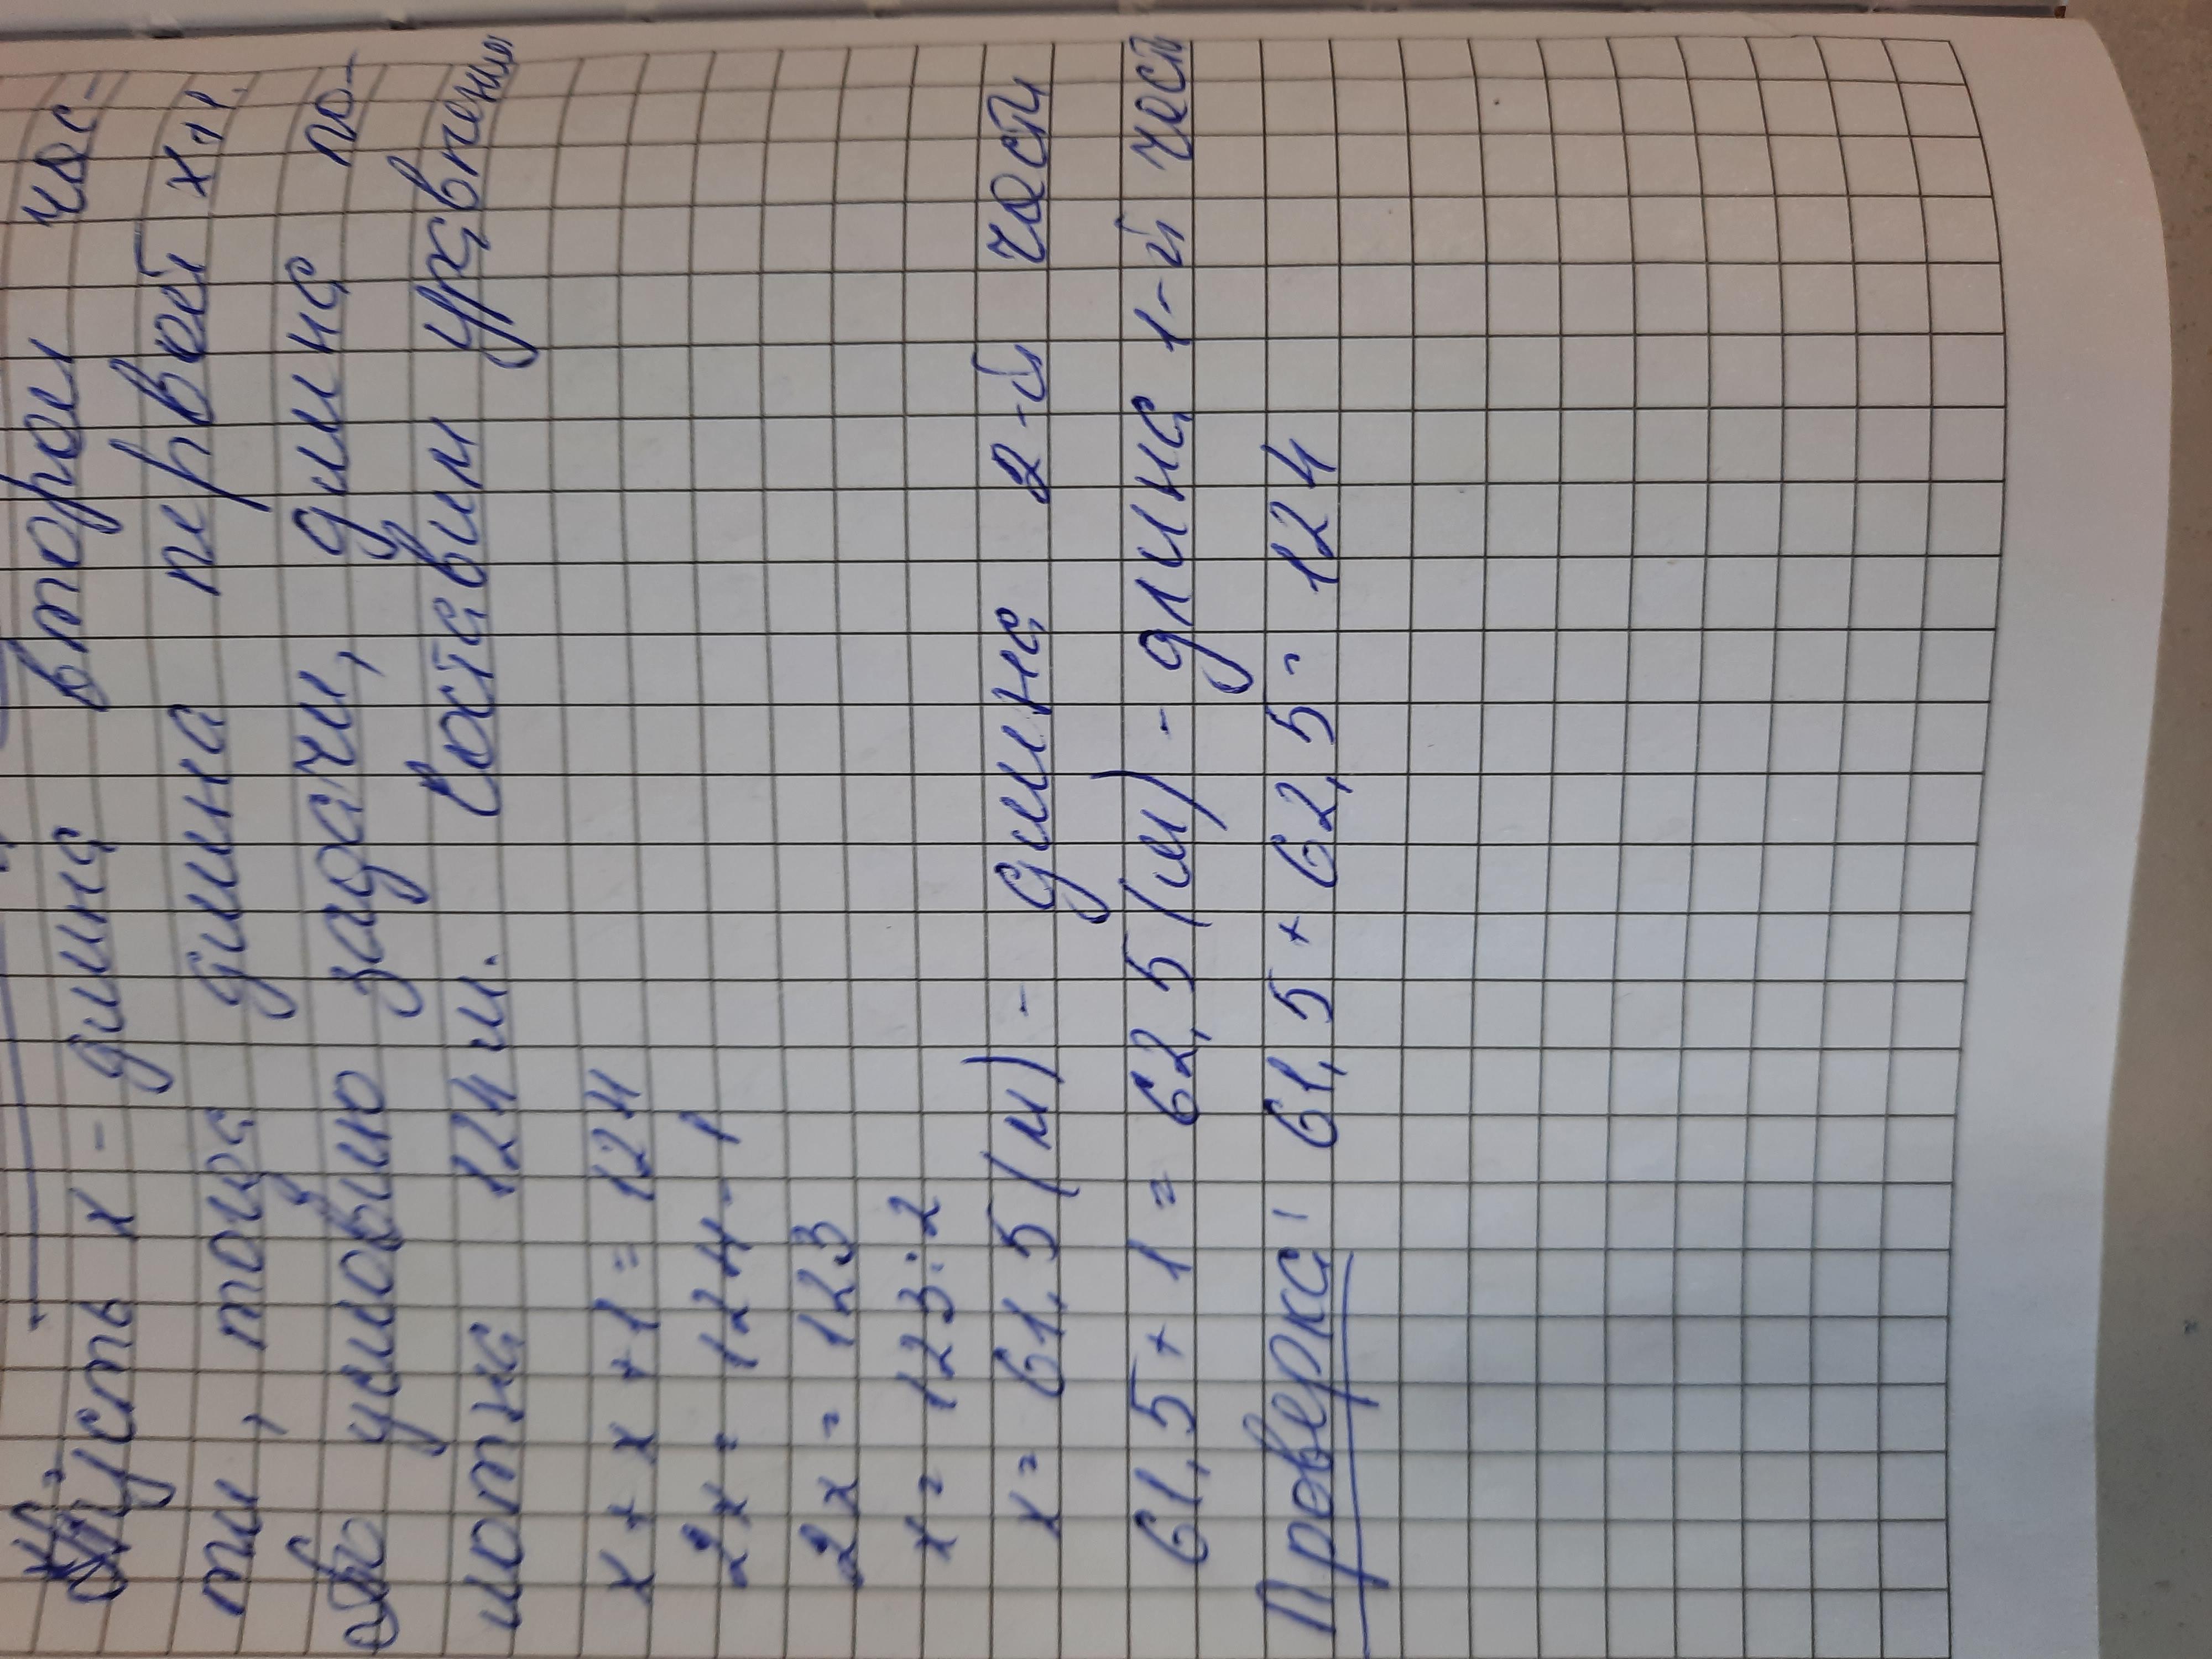 Пусть x - длина второй час-
ти, тогда длина первой x+1.
По условию задачи, длина по-
лотна 124 м. Составим уравнение
x + x + 1 = 124
2x = 124 - 1
2x = 123
x = 123 : 2
x = 61,5 (м) - длина 2-й части
61,5 + 1 = 62,5 (м) - длина 1-й част
Проверка: 61,5 + 62,5 = 124